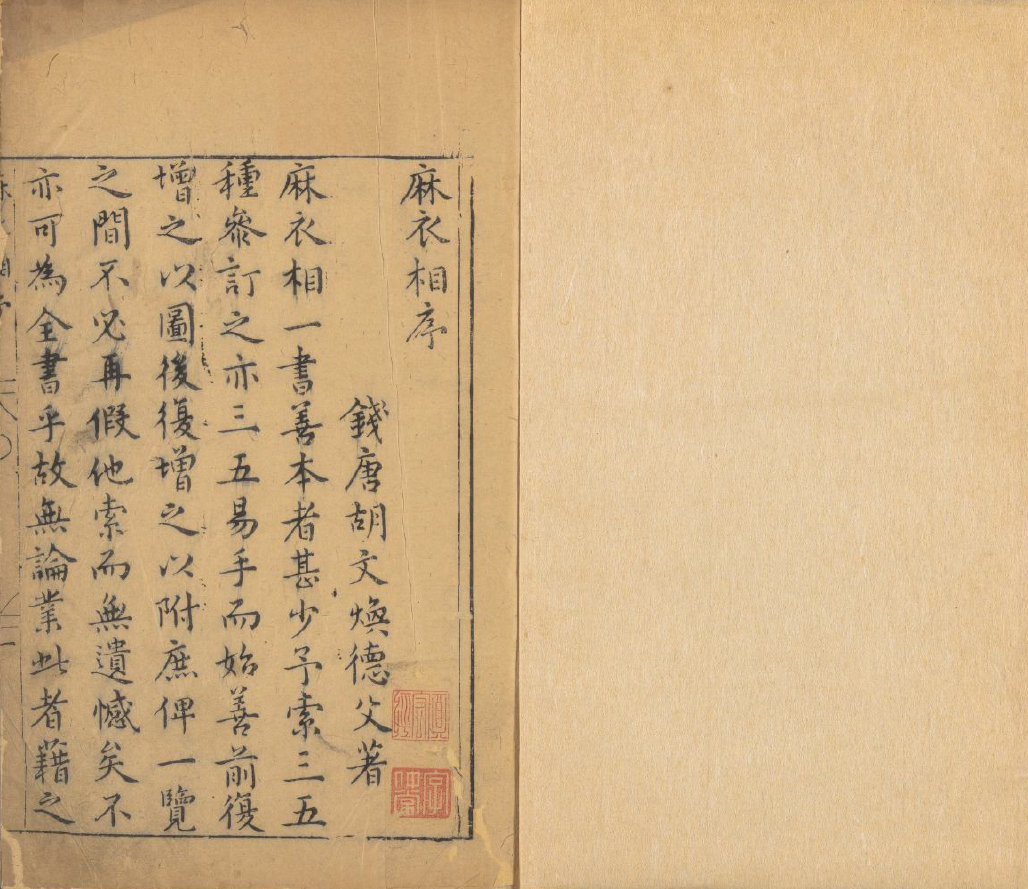 麻衣相序
錢唐胡文煥德父著
麻衣相一書善本者甚少予索三五
種叅訂之亦三五易手而始善前復
增之以圖後復增之以附庶俾一覽
之間不必再假他索而無遺憾矣不
亦可為全書乎故無論業此者藉之